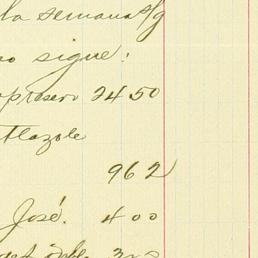 la semana s/g
no sigue:
apresero 2450
tlazole
962
José. 400